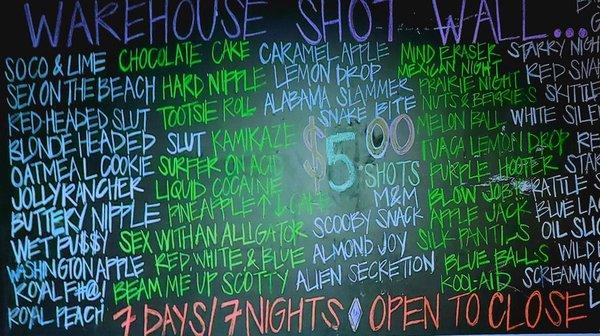 WAREHOUSE SHOT WALL...
SOCO & LIME
SEX ON THE BEACH
RED HEADED SLUT
BLONDE HEADED SLUT
OATMEAL COOKIE
JOLLYRANCHER
BUTTERY NIPPLE
WET PU$$Y
WASHINGTON APPLE
ROYAL F#@!
ROYAL PEACH
CHOCOLATE CAKE
HARD NIPPLE
TOOTSIE ROLL
KAMIKAZE
SURFER ON ACID
LIQUID COCAINE
PINEAPPLE ↑↓ CAKE
SEX WITH AN ALLIGATOR
RED, WHITE & BLUE
BEAM ME UP SCOTTY
CARAMEL APPLE
LEMON DROP
ALABAMA SLAMMER
SNAKE BITE
$5.00
SHOTS
M&M
SCOOBY SNACK
ALMOND JOY
ALIEN SECRETION
MIND ERASER
MEXICAN NIGHT
PRAIRIE NIGHT
NUTS & BERRIES
MELON BALL
TUACA LEMON DROP
PURPLE HOOTER
BLOW JOB
APPLE JACK
SILK PANTIES
BLUE BALLS
KOO-AID
STARRY NIGH
RED SNA
SKITTLE
WHITE SILEN
RED
STAR
RATTLE S
BLUE LAG
OIL SLIC
WILD
SCREAMING
7 DAYS/7 NIGHTS ◊ OPEN TO CLOSE